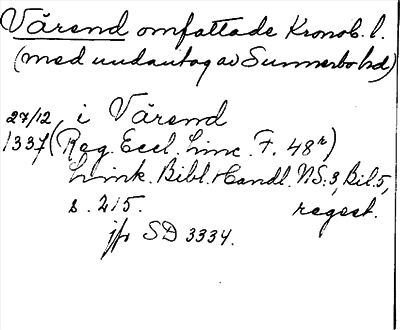 Värend omfattade Kronob. l.
(med undantag av Sunnerbo hd)
27/12 i Värend
1337 (Reg. Eccl. Linc. F. 48r)
Link. Bibl. Handl. NS:3, Bil. 5,
s. 215. regest.
jfr SD 3334.